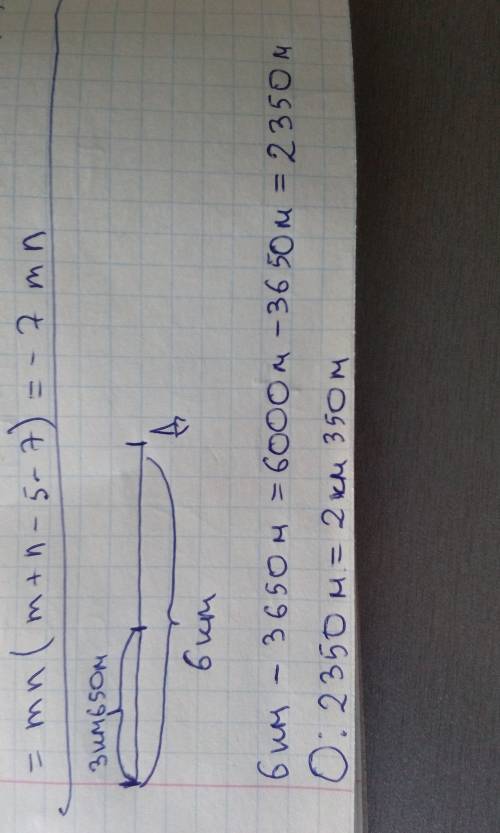 = mn(m+n-5-7) = -7 mn
3км650м
6 км
6 км - 3650 м = 6000 м - 3650 м = 2350 м
О: 2350 м = 2 км 350 м